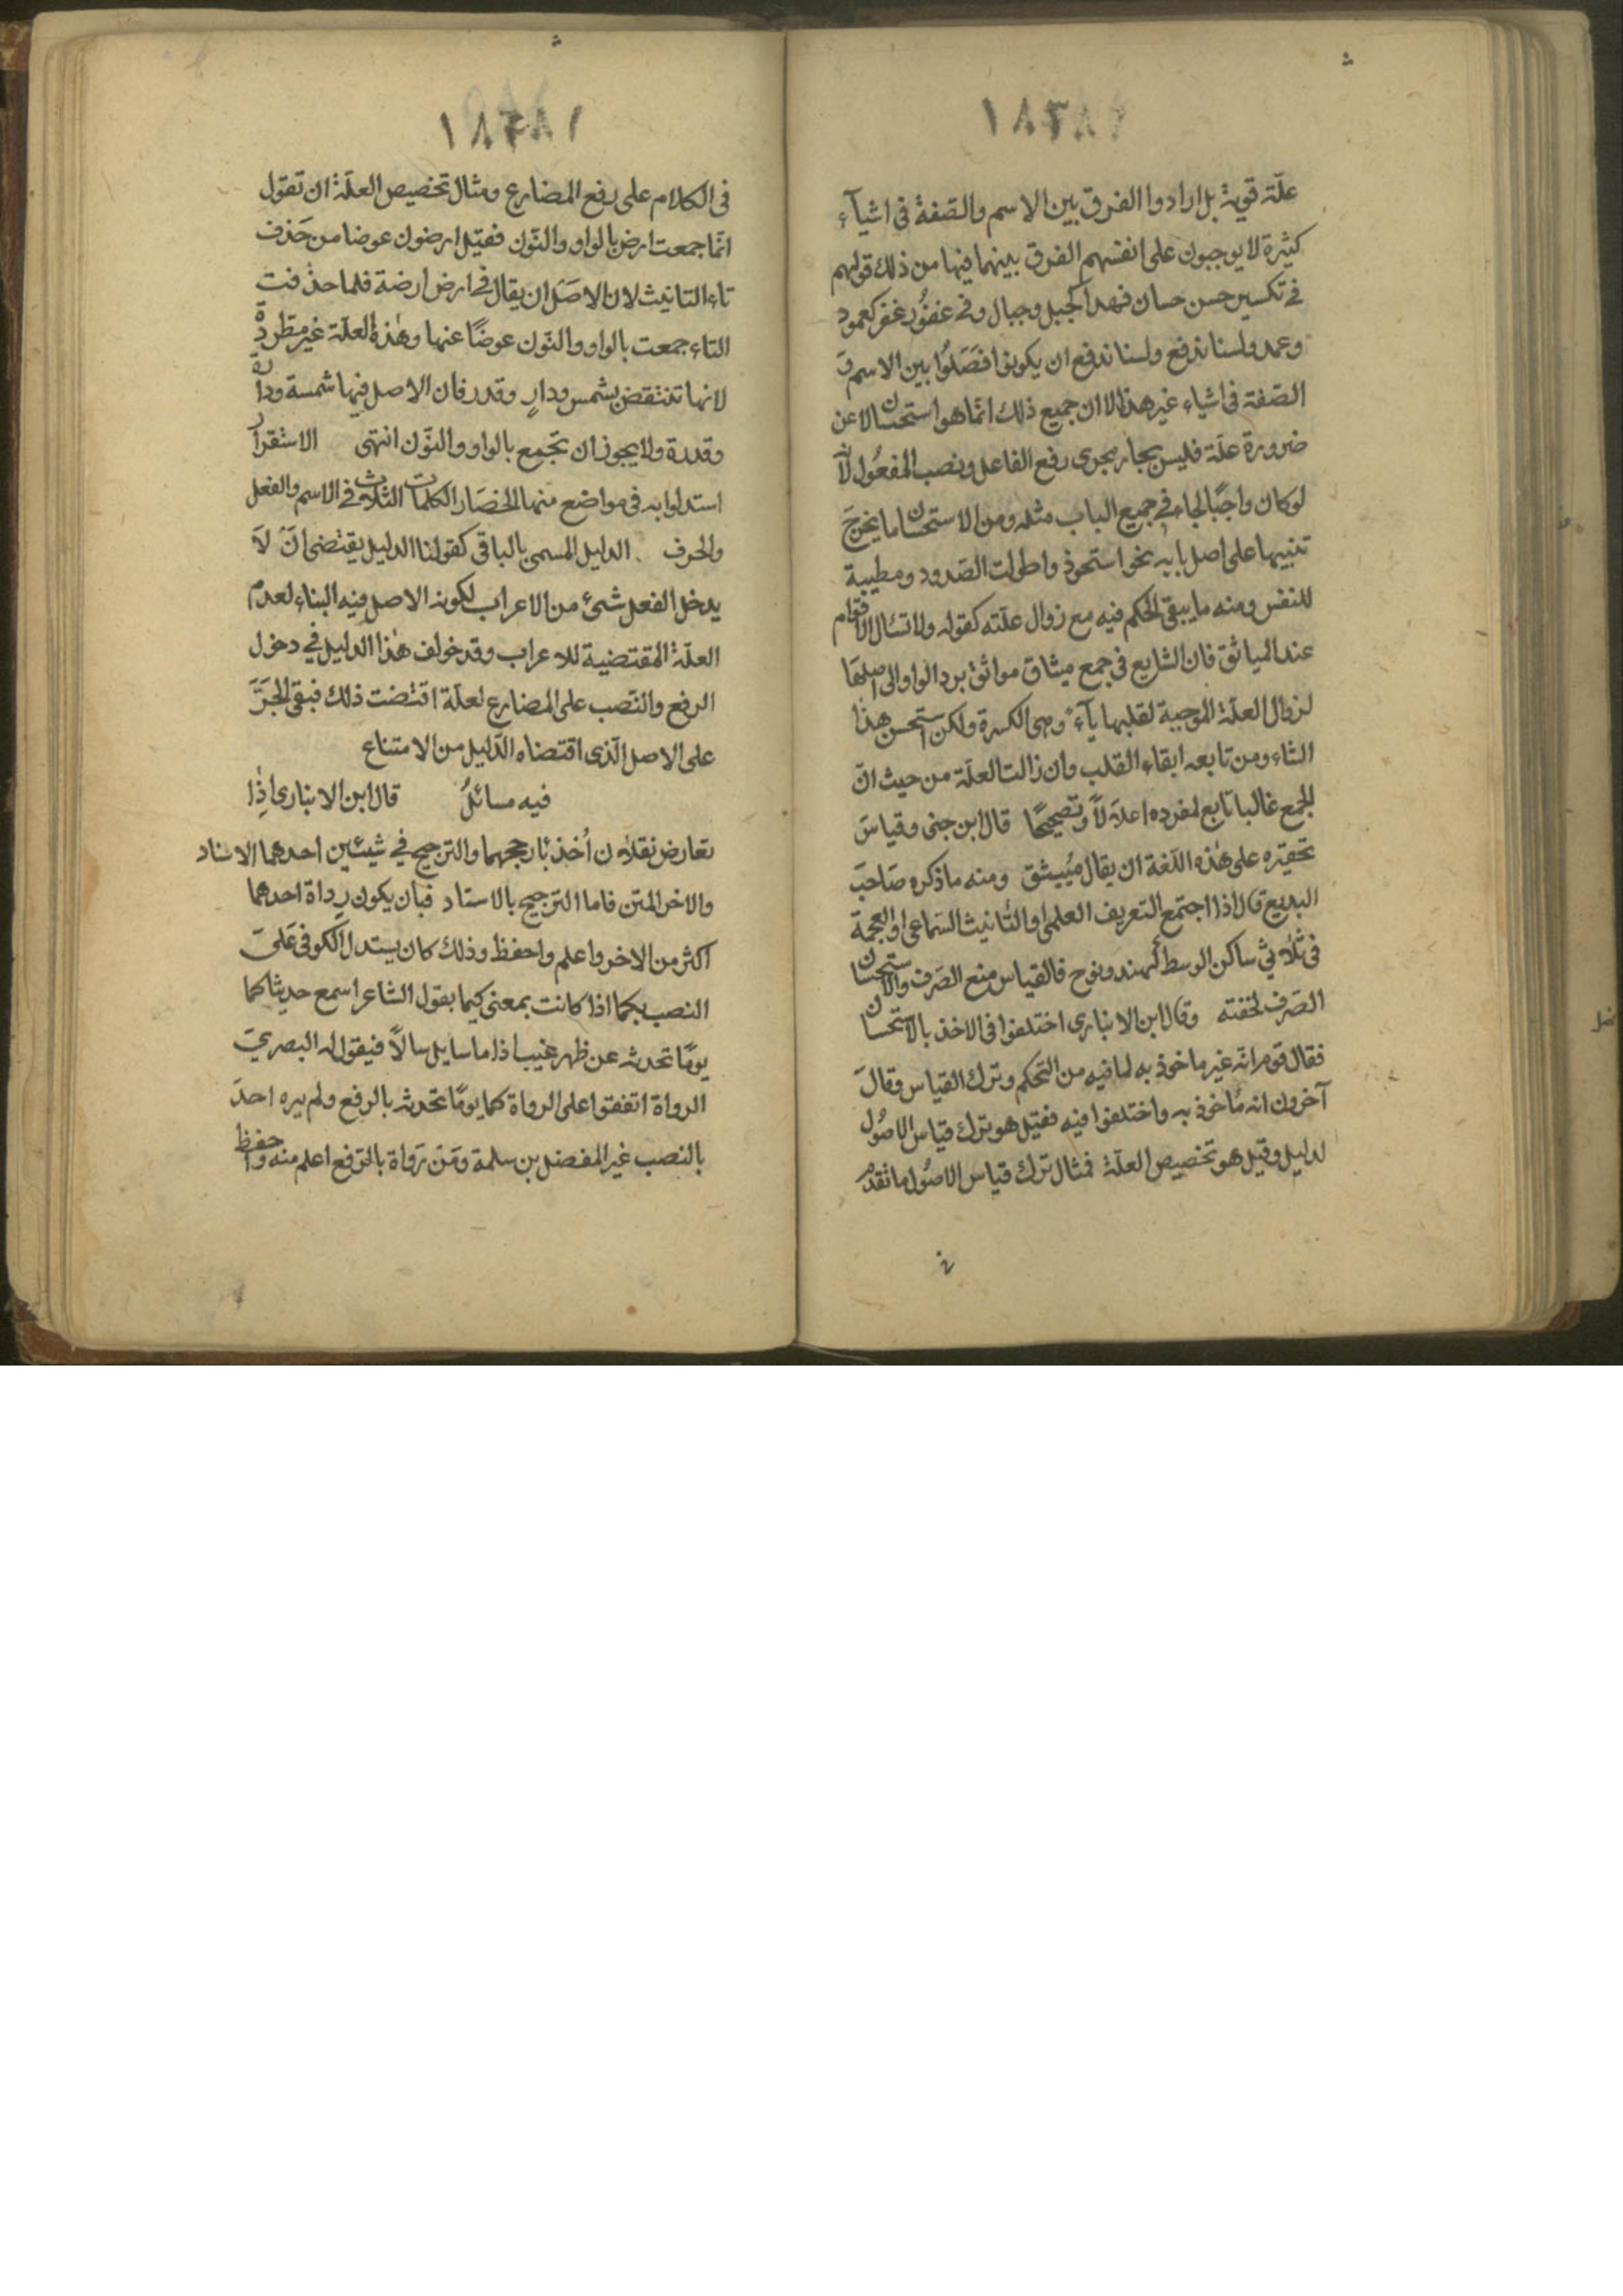 ١٨٣٨١
علّة قوية بل ارادوا الفرق بين الاسم والصّفة في اشيآء
كثيرة لا يوجبون على انفسهم الفرق بينهما فيها من ذلك قولهم
في تكسير حسن حسان فهذا كجبل وجبال وفي غفُور غفر كعمود
وعمد ولسنا ندفع ولسنا ندفع ان يكونوا فصَلُوا بين الاسم و
الصّفة في اشياء غير هذا الا ان جميع ذلك انّما هو استحسان لا عن
ضرورة علّة فليس بجار مجرى رفع الفاعل ونصب المفعُول لانّه
لو كان واجبًا لجاء في جميع الباب مثله ومن الاستحسان ما يخرج
تنبيها على اصل بابه نحو استحوذ واطولت الصّدود ومطيبة
للنفس ومنه ما يبقى الحكم فيه مع زوال علّته كقوله ولا تسال الاقوام
عند المياثق فان الشايع في جمع ميثاق مواثق برد الواو الى اصلها
لزوال العلّة الموجبة لقلبها يآء وهي الكسرة ولكن استحسن هذا
الثاء ومن تابعه ابقاء القلب وان زالت العلّة من حيث انّ
الجمع غالبا تابع لمفرده اعلالًا وتصحيحًا قال ابن جنى وقياس
تحقيره على هذه اللّغة ان يقال مُييثق ومنه ما ذكره صَاحب
البديع قال اذا اجتمع التعريف العلمي والتّانيث السّماعي او العجمة
في ثلاثي ساكن الوسط كهند ونوح فالقياس منع الصّرف والاستحسان
الصّرف لخفته وقال ابن الانباري اختلفوا في الاخذ بالاستحسان
فقال قوم انّه غير ماخوذ به لما فيه من التحكم وترك القياس وقال
آخرون انه مُاخوذ به واختلفوا فيه فقيل هو ترك قياس الاصُول
لدليل وقيل هو تخصيص العلّة فمثال ترك قياس الاصُول ما تقدّم
١٨٣٨١
في الكلام على رفع المضارع ومثال تخصيص العلّة ان تقول
انّما جمعت ارض بالواو والنّون فقيل ارضون عوضا من حَذف
تاء التانيث لان الاصَل ان يقال في ارض ارضة فلما حذفت
التاء جمعت بالواو والنّون عوضًا عنها وهٰذه العلّة غير مطّردة
لانها تنتقض بشمس ودارٍ وقدر فان الاصل فيها شمسة ودارة
وقدرة ولا يجوز ان تجمع بالواو والنّون انتهى الاستقرا
استدلوا به في مواضع منها انحصَار الكلمات الثلاث في الاسم والفعل
والحرف الدليل المسمى بالباقي كقولنا الدليل يقتضى انّ لا
يدخل الفعل شئ من الاعراب لكونه الاصل فيه البناء لعدم
العلّة المقتضية للاعراب وقد خولف هٰذا الدليل في دخول
الرفع والنّصب على المضارع لعلّة اقتضت ذلك فبقى الجرّ
على الاصل الّذى اقتضاه الدّليل من الامتناع
فيه مسائلُ قال ابن الانبارى اذِا
تعارض نقلان اُخذ بارجحهما والترجيح في شيئين احدهما الاسناد
والاخر المتن فاما الترجيح بالاسناد فبان يكون رواة احدهما
اكثر من الاخر واعلم واحفظ وذلك كان يستدل الكوفى عَلى
النصب بكما اذا كانت بمعنى كيما بقول الشاعر اسمع حديثا كما
يومًا تحدثه عن ظهر غيب اذا ما سايل سالًا فيقول له البصريّ
الرواة اتفقوا على الرواة كما يومًا تحدثه بالرفع ولم يره احد
بالنصب غير المفضل بن سلمة ومَن رَواة بالرّفع اعلم منه واحفظ